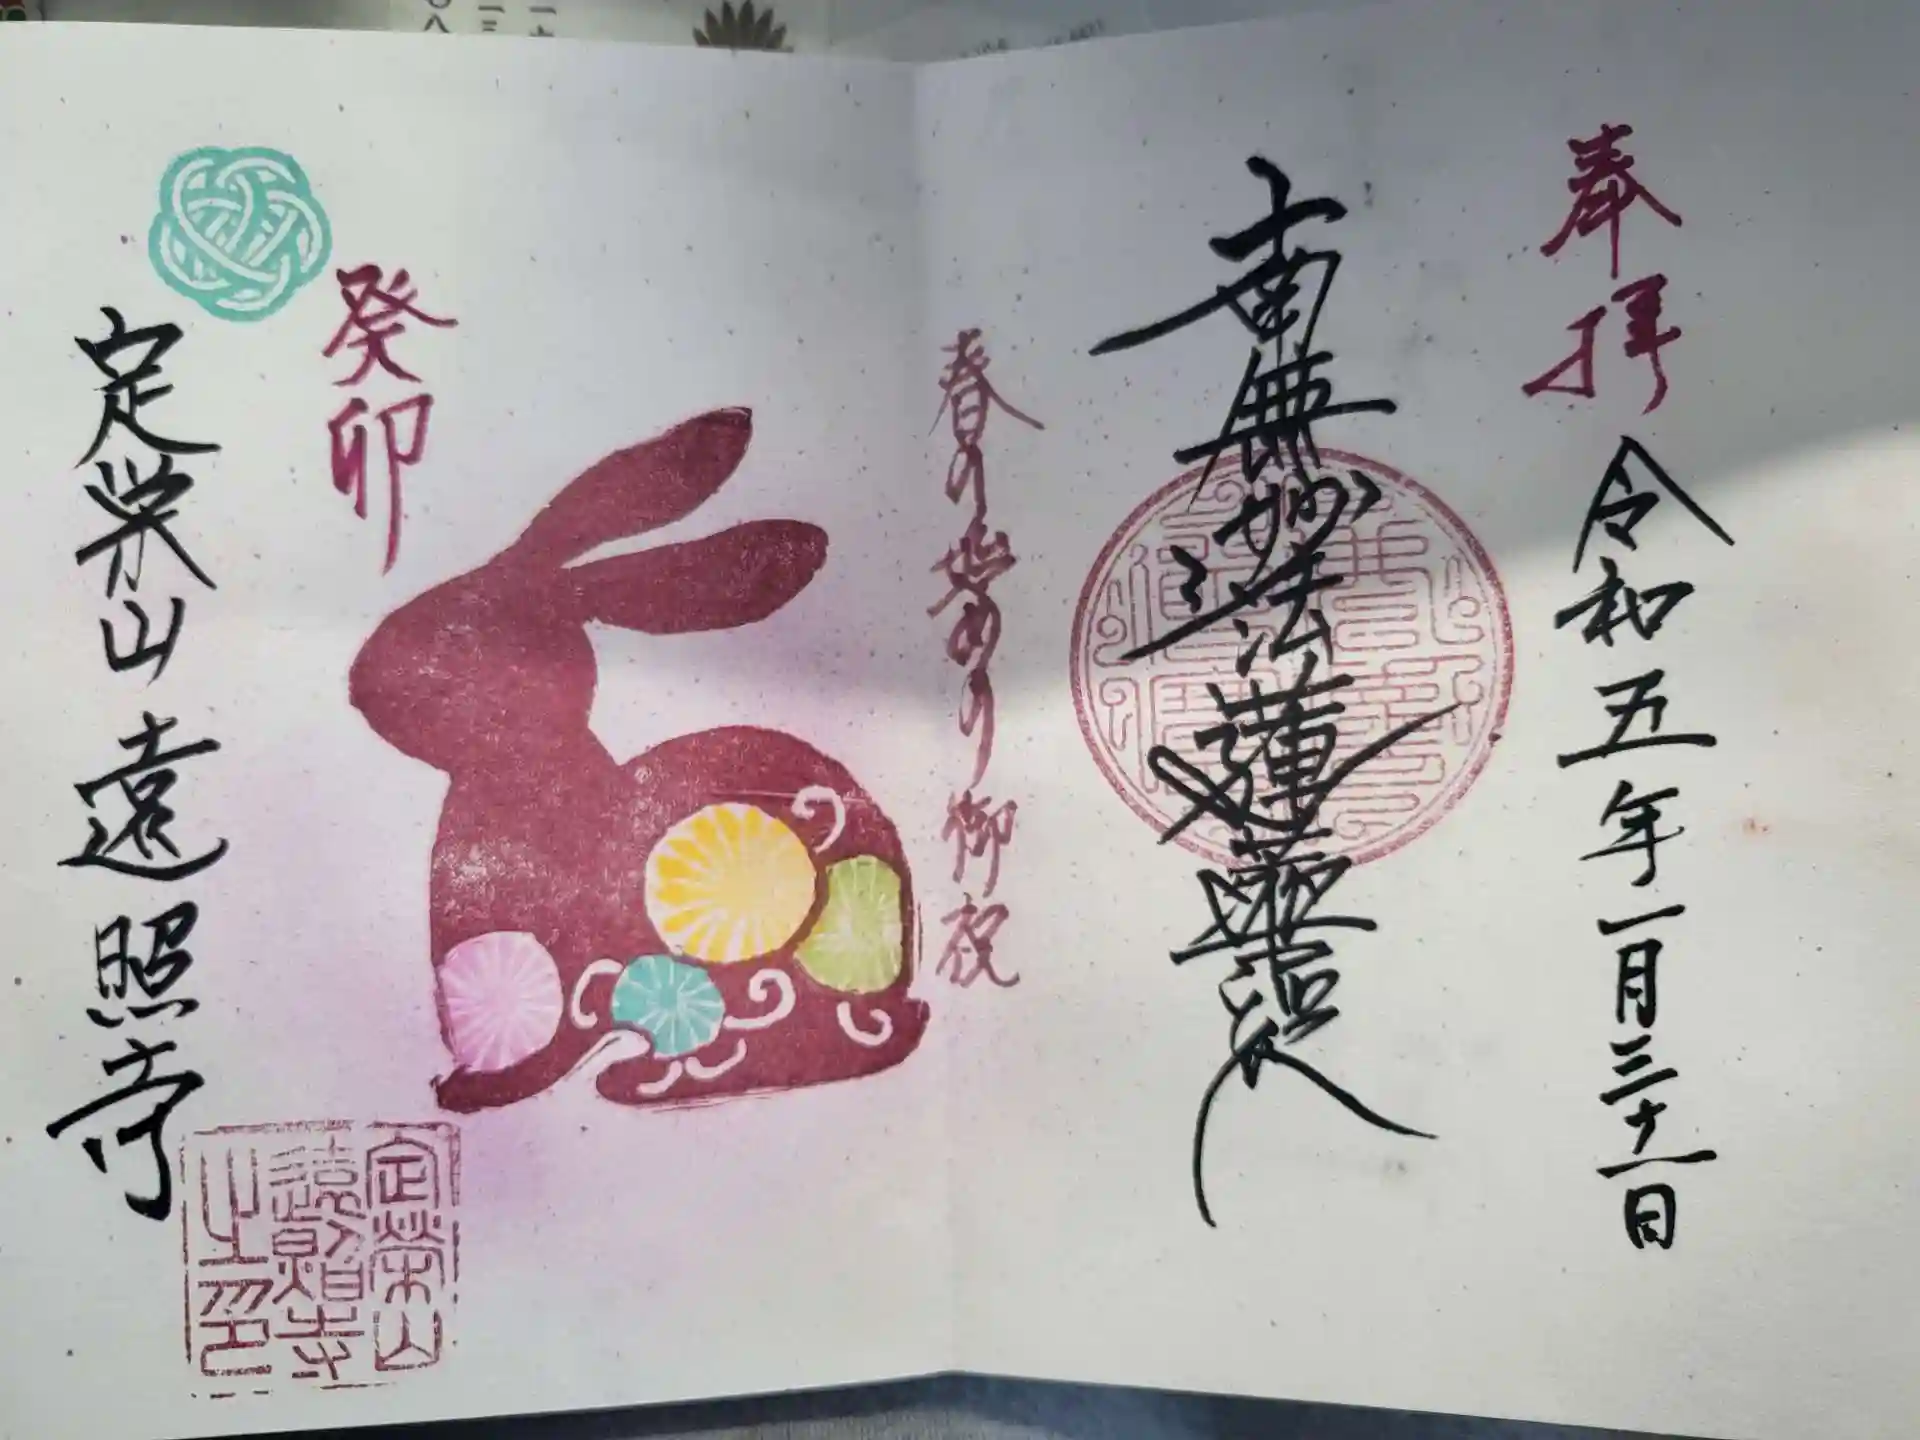 奉拝 令和五年一月三十一日
南無妙法蓮華経
春の始めの御祝
癸卯
定栄山 遠照寺
定榮山
遠照寺
之印